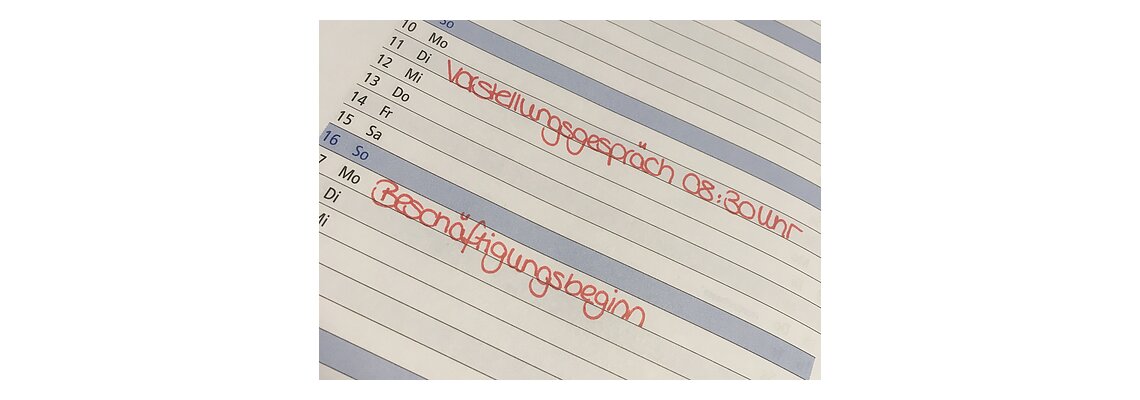 So
10 Mo
11 Di Vorstellungsgespräch 08:30 Uhr
12 Mi
13 Do
14 Fr
15 Sa
16 So
7 Mo Beschäftigungsbeginn
Di
Mi